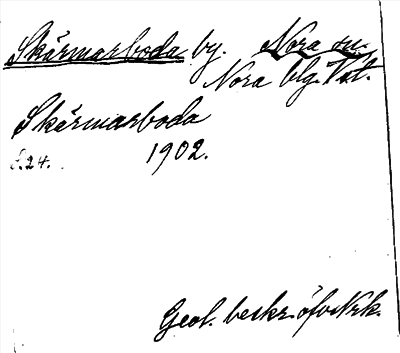 Skärmarboda by. Nora sn.
Nora blg. Vstl.
Skärmarboda
S.24. 1902.
Geol. beskr. öfv Nrk.